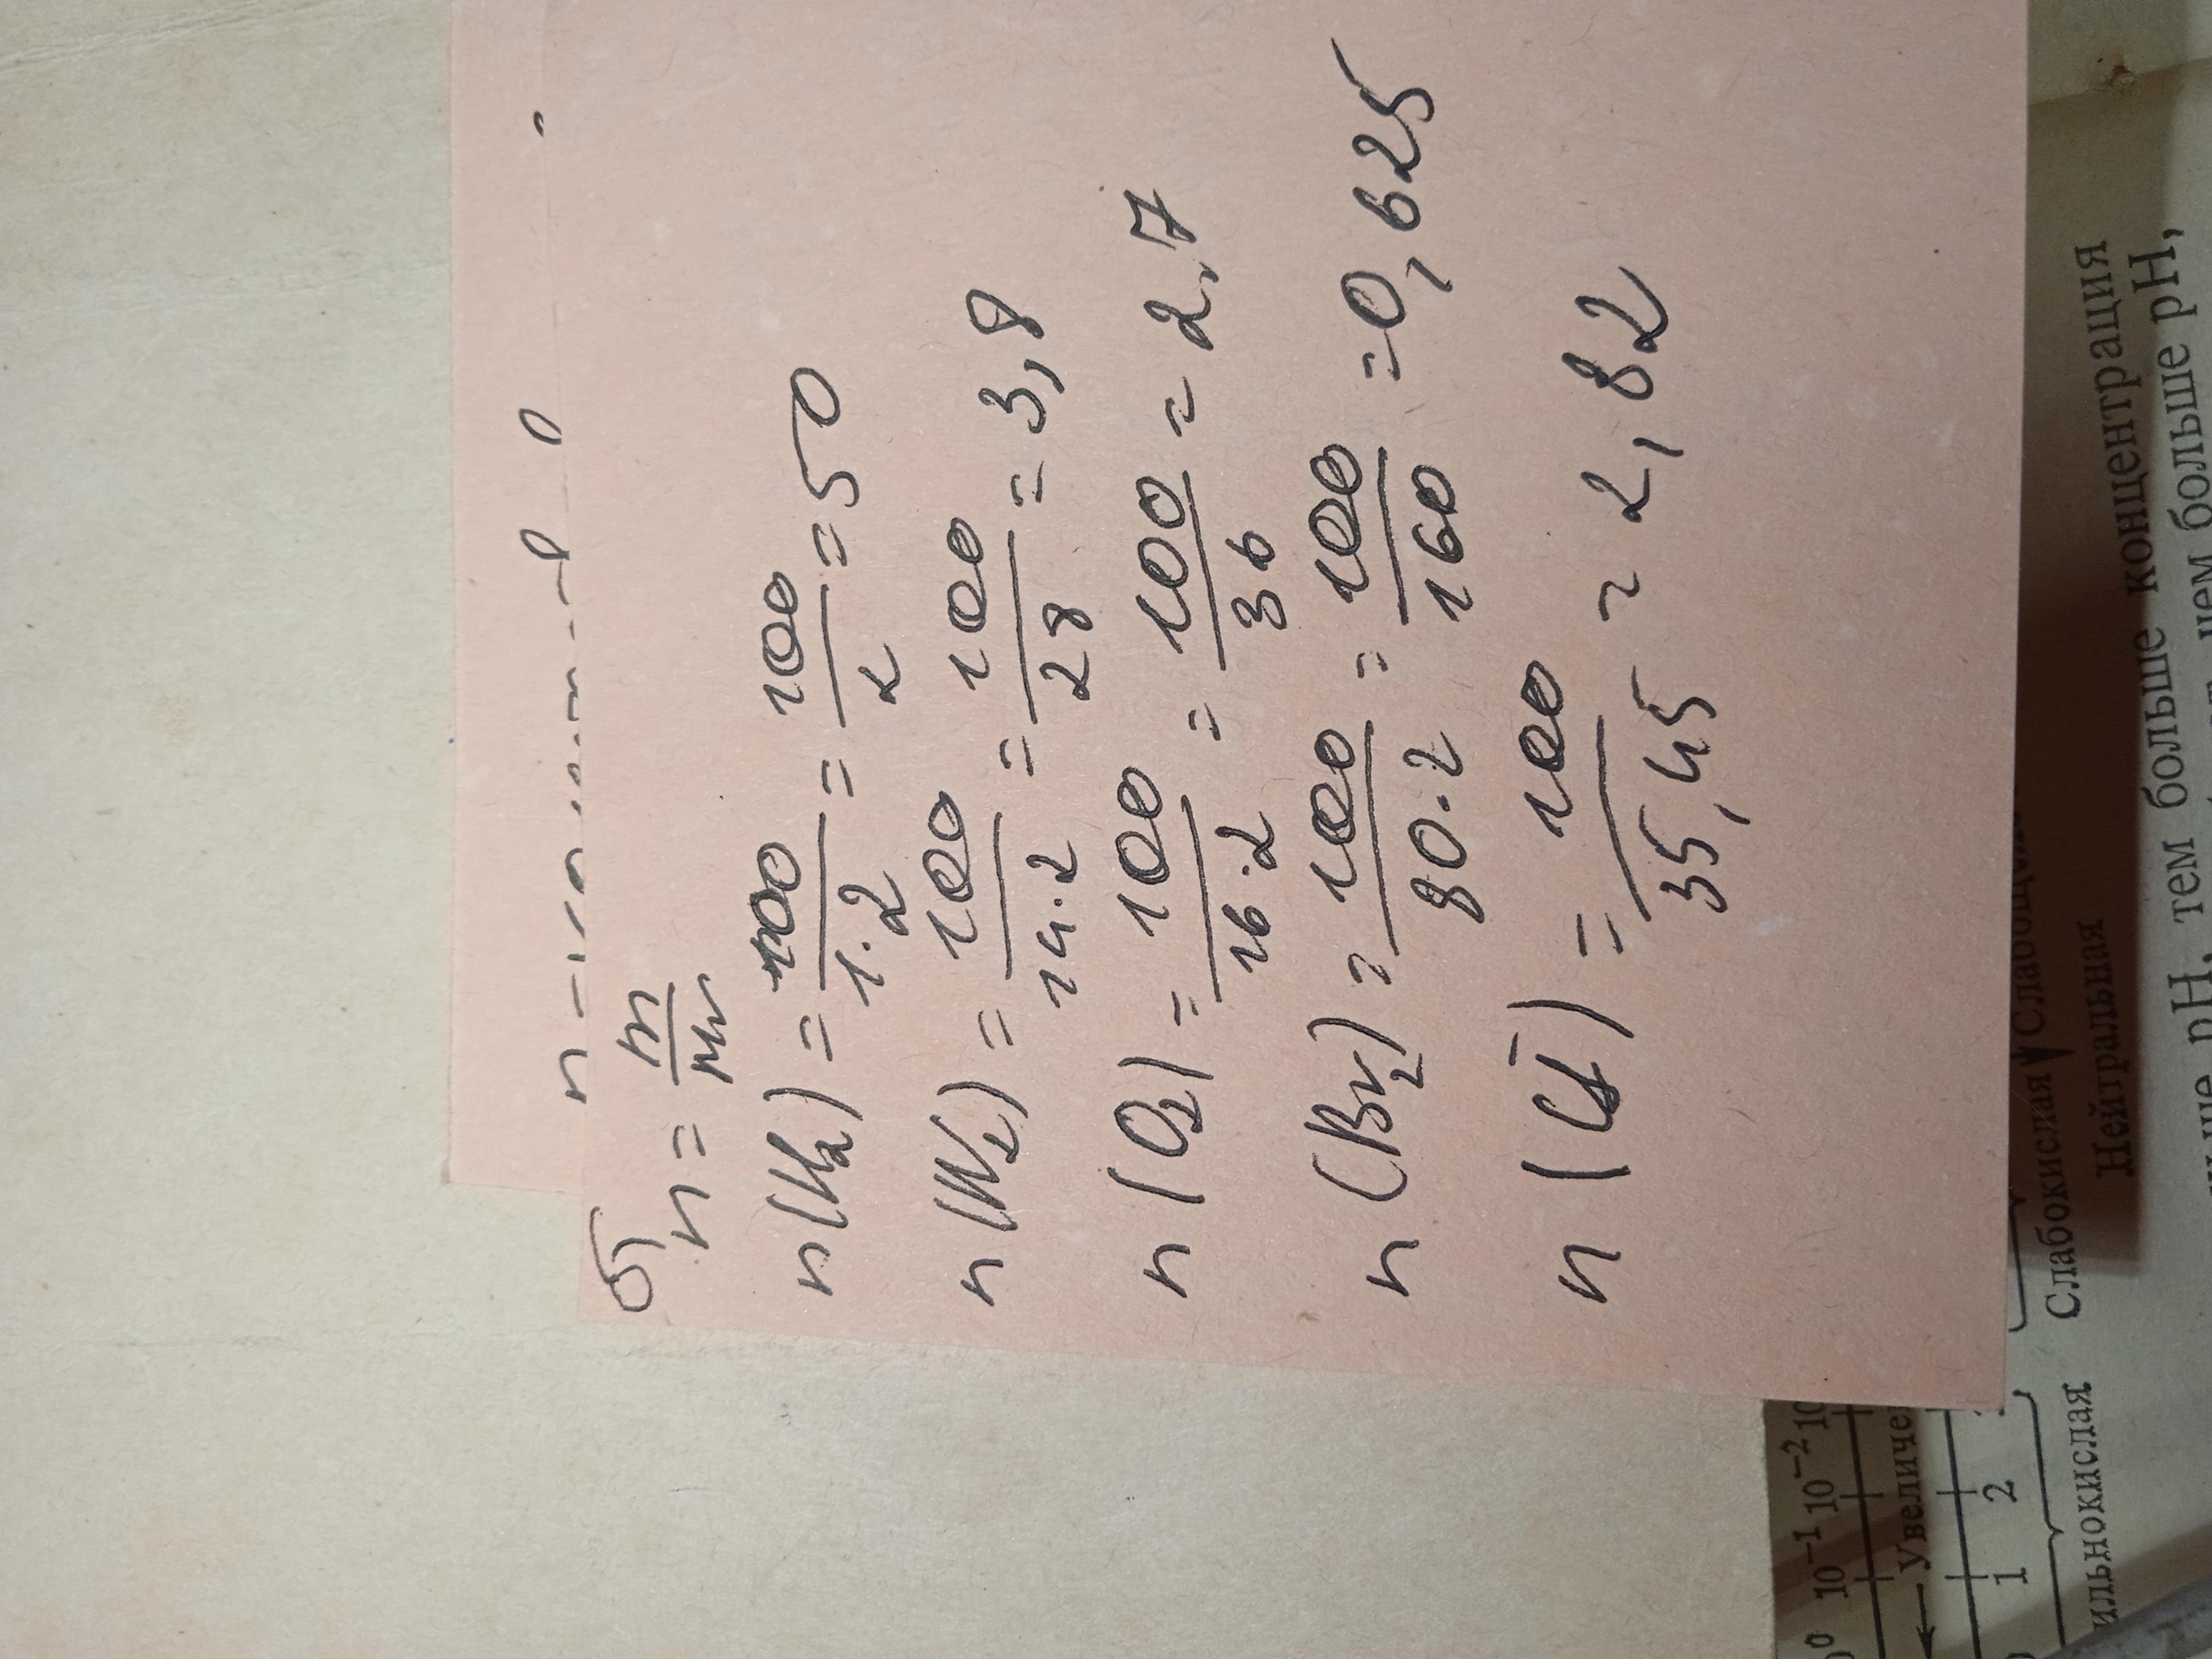 б)
n = m/Mr
n(H₂) = 100/1·2 = 100/2 = 50
n(N₂) = 100/14·2 = 100/28 = 3,8
n(O₂) = 100/16·2 = 100/36 = 2,7
n(Br₂) = 100/80·2 = 100/160 = 0,625
n(Cl⁻) = 100/35,45 = 2,82
10⁻¹ 10⁻²
← Увеличе
1 2
ильнокислая Слабокислая Слабощел
Нейтральная
pH, тем больше концентрация
чем больше pH,